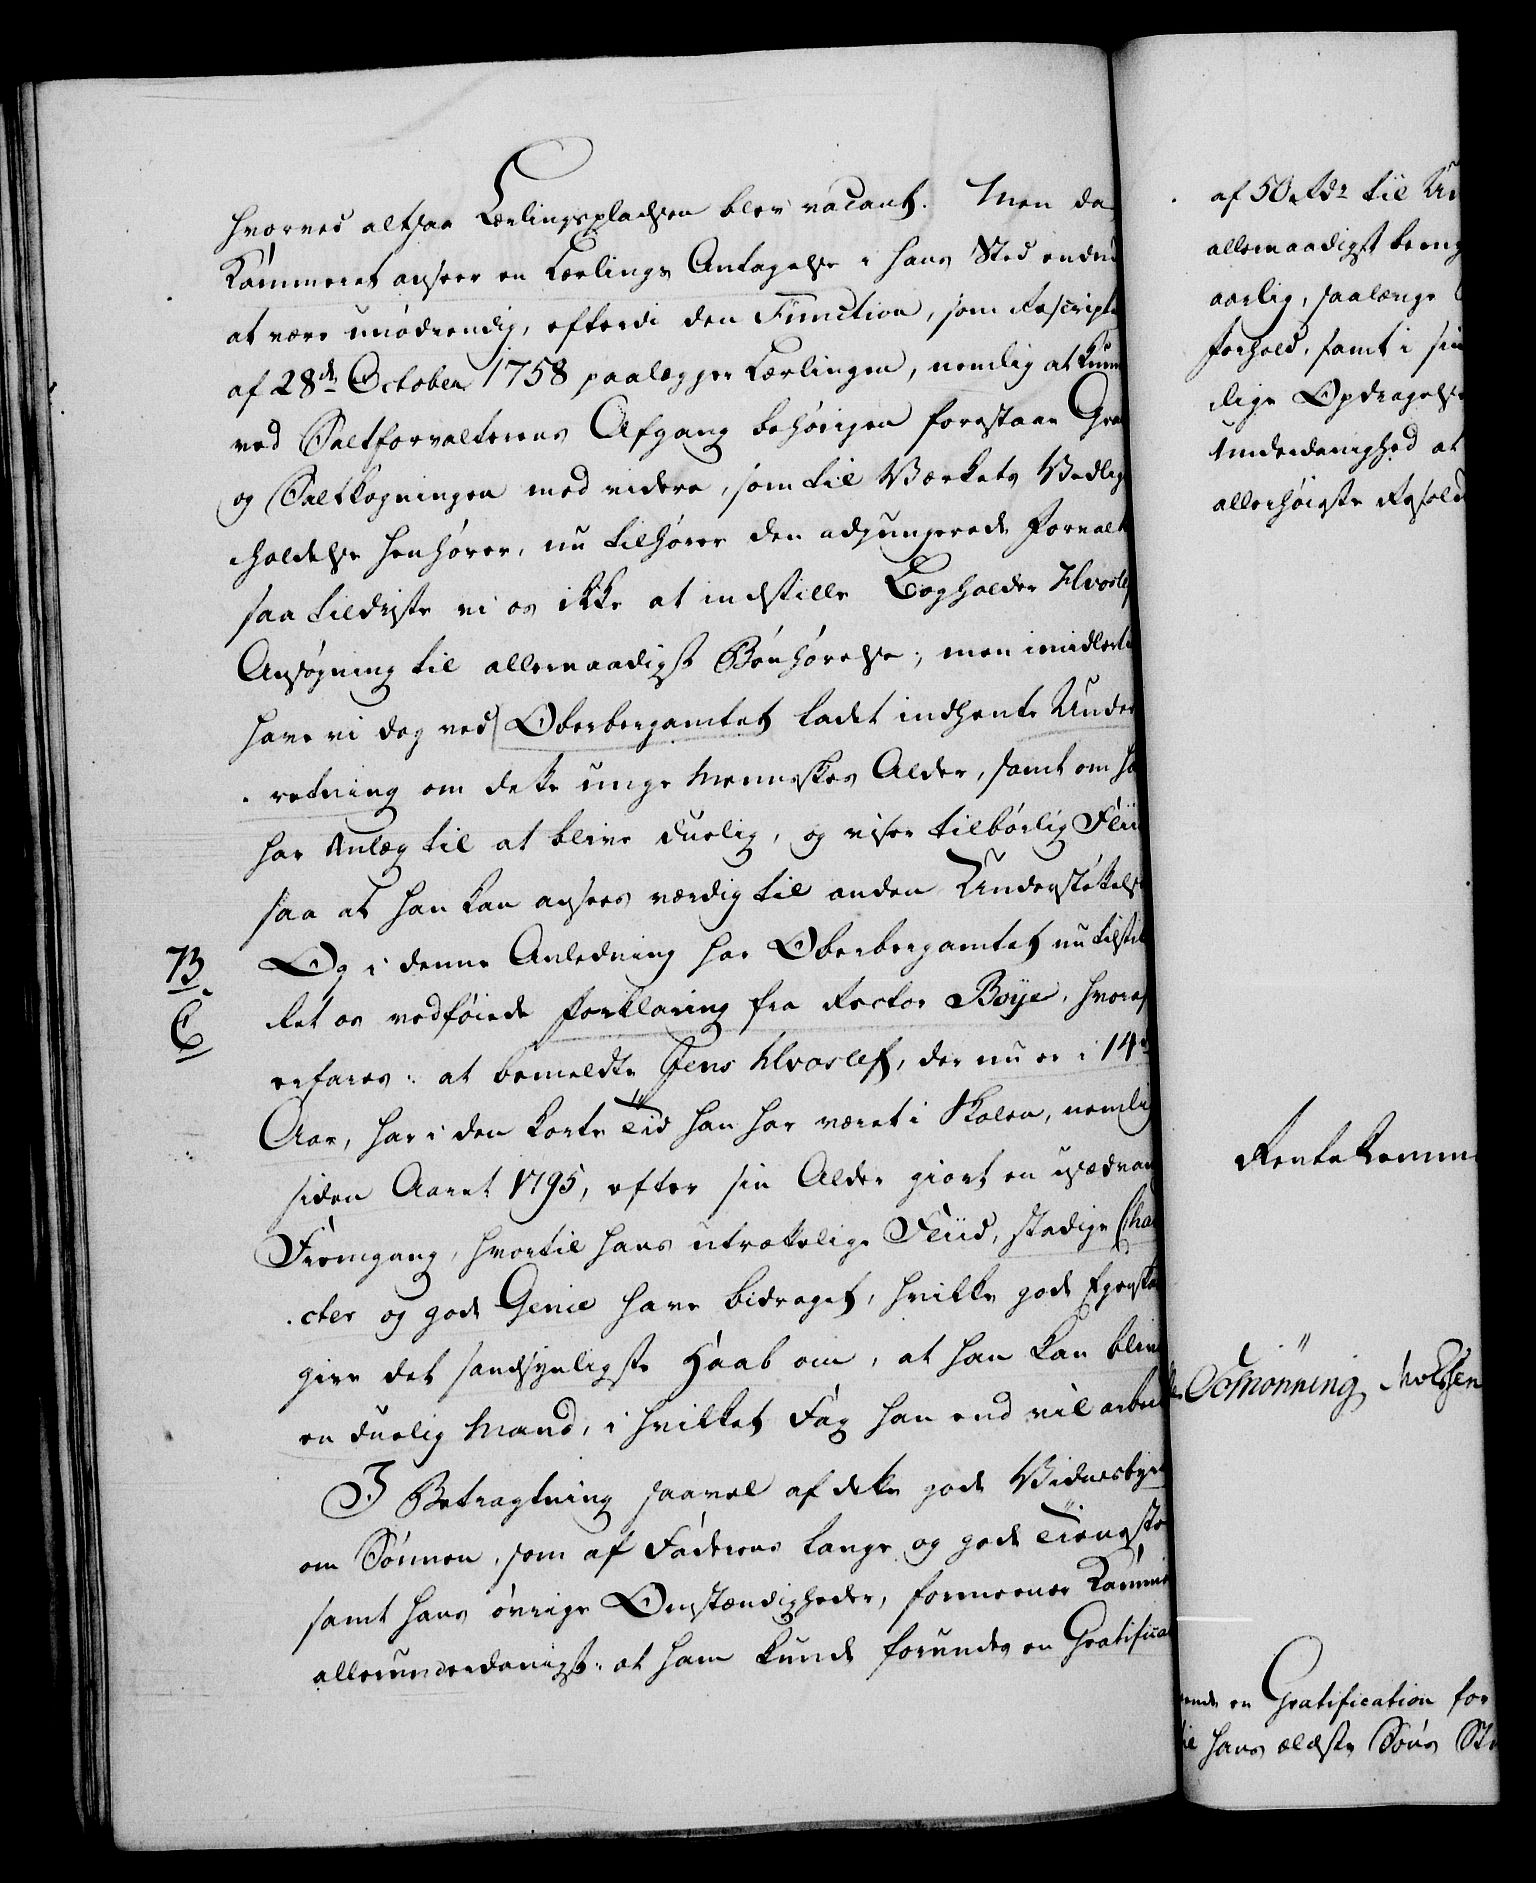 hvorved altsaa Lærlingspladsen blev vacant. Men da
Kammeret anseer en Lærlings Antagelse i hans Sted endnu
at være unødvendig, efterdi den Function, som Rescript
af 28de October 1758 paalægger Lærlingen, nemlig at kun
ved Saltforvalterens Afgang behørigen forestaae Gra
og Saltkogningen med videre, som til Værkets Vedlig
holdelse henhører, nu tilhører den adjungerede Forvalt
saa tildriste vi os ikke at indstille Bogholder Hvoslef
Ansøgning til allernaadigst Bønhørelse; men imidlerti
have vi dog ved Oberbergamtet ladet indhente Under
retning om dette unge Menneskes Alder, samt om ha
har Anlæg til at blive duelig, og viser tilbørlig Flii
saa at han kan ansees værdig til anden Understøttelse
73.
Og i denne Anledning har Oberbergamtet nu tilstil
C
let os vedføiede Forklaring fra Rector Boye, hvoraf
erfares: at bemeldte Jens Hvoslef, der nu er i 14de
Aar, har i den korte Tiid han har været i Skolen, nemlig
siden Aaret 1795, efter sin Alder giort en usædvan
Fremgang, hvortil hans utrættelige Fliid, stadige Cha
cter og gode Genie have bidraget, hvilke gode Egenska
give det sandsynligste Haab om, at han kan blive
en duelig Mand, i hvilket Fag han end vil arbei
I Betragtning saavel af dette gode Vidnesbyrd
om Sønnen, som af Faderens lange og gode Tieneste
samt hans øvrige Omstændigheder, formeener Kamme
allerunderdanigst: at ham kunde forundes en Gratifica
af 50 Rdr til Un
allernaadigst bevilg
aarlig, saalænge
forhold, samt i sin
dige Opdragelse
Underdanighed at
allerhøieste Resolu
RenteKamm
Schønning Moessen
en Gratification for
hans ældste Søns St